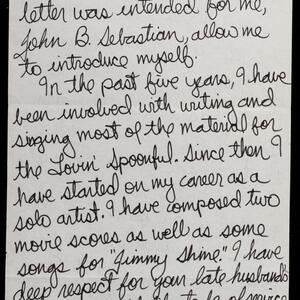 letter was intended for me,
John B. Sebastian, allow me
to introduce myself.
In the past five years, I have
been involved with writing and
singing most of the material for
the Lovin' Spoonful. Since then I
have started on my career as a
solo artist. I have composed two
movie scores as well as some
songs for "Jimmy Shine." I have
deep respect for your late husband's